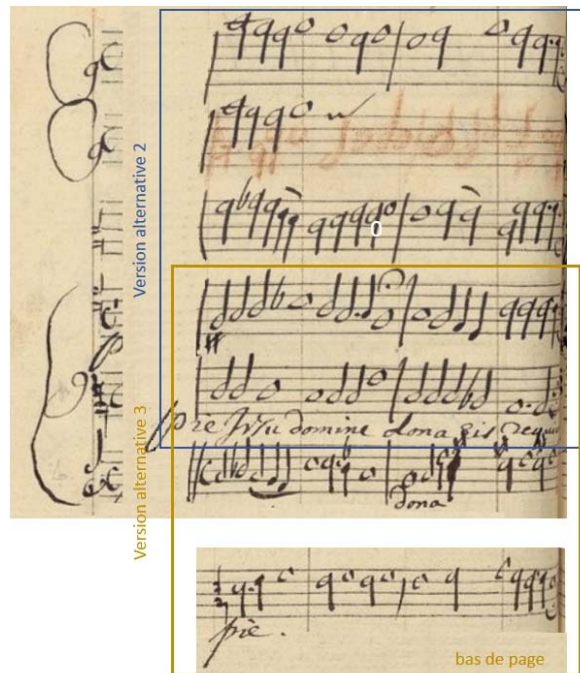 Version alternative 2
0
Version alternative 3
pie Jesu domine dona eis requi
dona
pie.
bas de page